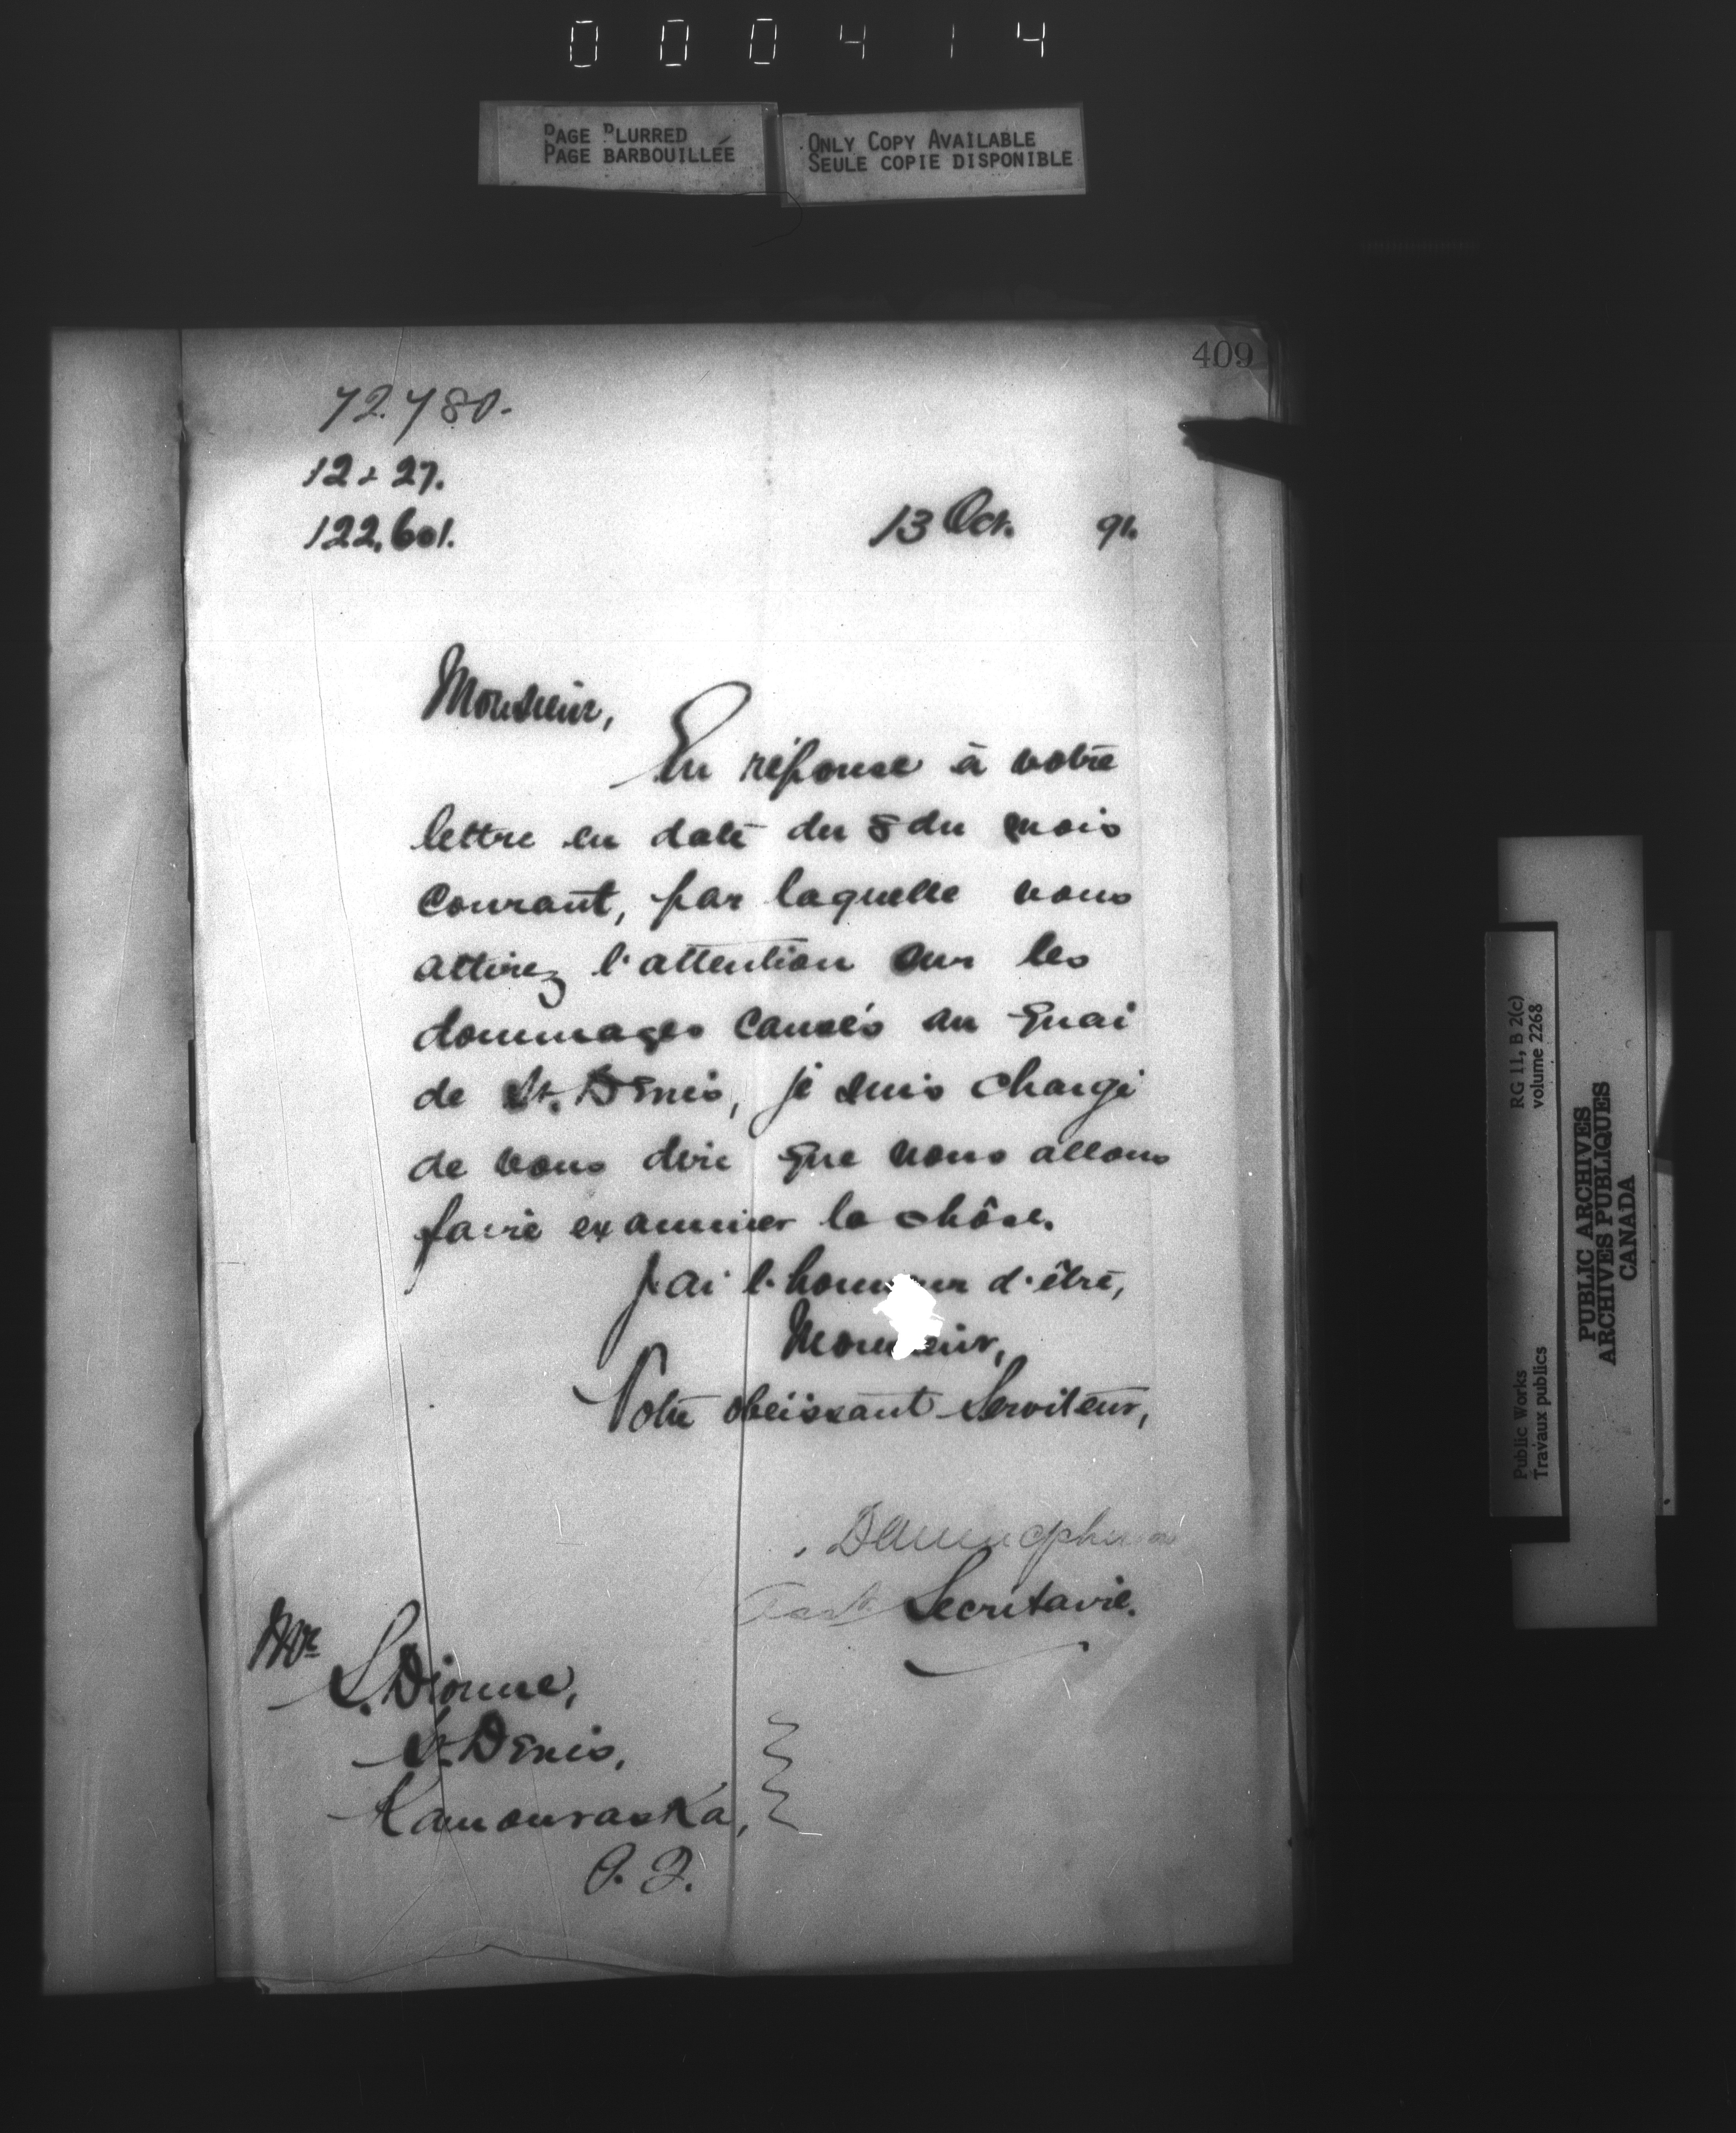 000414
PAGE BLURRED
PAGE BARBOUILLÉE
ONLY COPY AVAILABLE
SEULE COPIE DISPONIBLE
409
72.780.
12 - 27.
122,601.
13 Oct. 91.
Monsieur,
En réponse à votre
lettre en date du 8 du mois
courant, par laquelle vous
attirez l'attention sur les
dommages causés au quai
de St. Denis, je suis chargé
de vous dire que nous allons
faire examiner la chôse.
J'ai l'honneur d'être,
Monsieur,
Votre obéissant Serviteur,
Secrétaire.
Mr
L. Dionne,
St. Denis,
Kamouraska,
P. Q.
RG 11, B 2(c)
volume 2268
Public Works
Travaux publics
PUBLIC ARCHIVES
ARCHIVES PUBLIQUES
CANADA